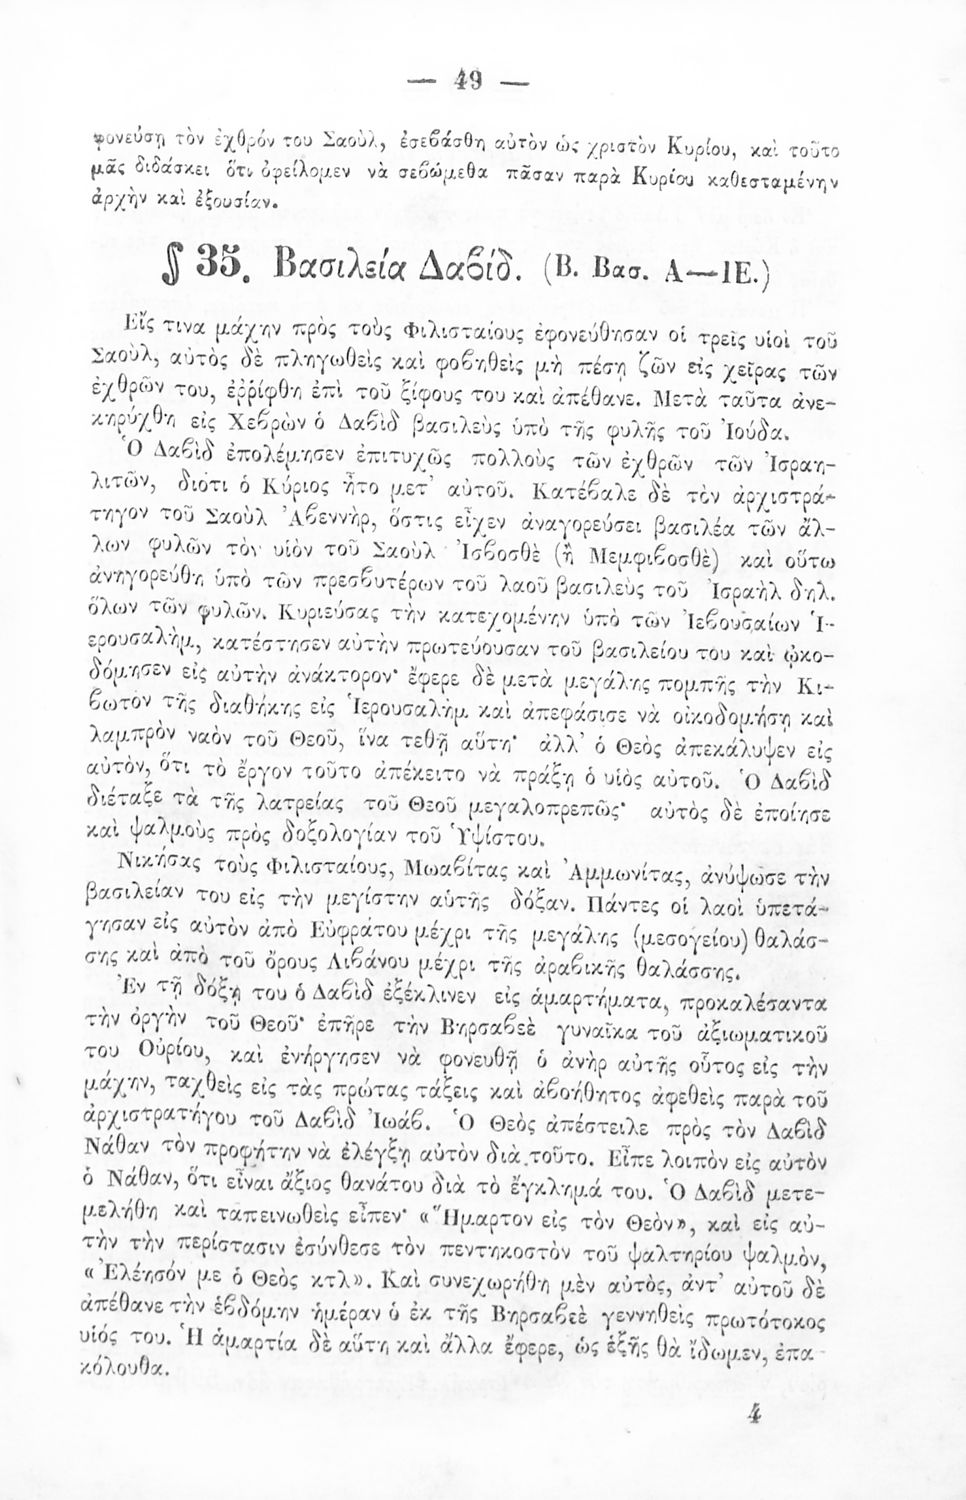 — 49 —
φονεύσῃ τὸν ἐχθρόν του Σαούλ, ἐσεβάσθη αὐτὸν ὡς χριστὸν Κυρίου, καὶ τοῦτο
μᾶς διδάσκει ὅτι ὀφείλομεν νὰ σεβώμεθα πᾶσαν παρὰ Κυρίου καθεσταμένην
ἀρχὴν καὶ ἐξουσίαν.
§ 35. Βασιλεία Δαβίδ. (Β. Βασ. Α—ΙΕ.)
Εἴς τινα μάχην πρὸς τοὺς Φιλισταίους ἐφονεύθησαν οἱ τρεῖς υἱοὶ τοῦ
Σαούλ, αὐτὸς δὲ πληγωθεὶς καὶ φοβηθεὶς μὴ πέσῃ ζῶν εἰς χεῖρας τῶν
ἐχθρῶν του, ἐῤῥίφθη ἐπὶ τοῦ ξίφους του καὶ ἀπέθανε. Μετὰ ταῦτα ἀνε-
κηρύχθη εἰς Χεβρὼν ὁ Δαβὶδ βασιλεὺς ὑπὸ τῆς φυλῆς τοῦ Ἰούδα.
Ὁ Δαβὶδ ἐπολέμησεν ἐπιτυχῶς πολλοὺς τῶν ἐχθρῶν τῶν Ἰσραη-
λιτῶν, διότι ὁ Κύριος ἦτο μετ' αὐτοῦ. Κατέβαλε δὲ τὸν ἀρχιστρά-
τηγον τοῦ Σαοὺλ Ἀβεννήρ, ὅστις εἶχεν ἀναγορεύσει βασιλέα τῶν ἄλ-
λων φυλῶν τὸν υἱὸν τοῦ Σαοὺλ Ἰσβοσθὲ (ἢ Μεμφιβοσθὲ) καὶ οὕτω
ἀνηγορεύθη ὑπὸ τῶν πρεσβυτέρων τοῦ λαοῦ βασιλεὺς τοῦ Ἰσραὴλ δηλ.
ὅλων τῶν φυλῶν. Κυριεύσας τὴν κατεχομένην ὑπὸ τῶν Ἰεβουσαίων Ἱ-
ερουσαλήμ, κατέστησεν αὐτὴν πρωτεύουσαν τοῦ βασιλείου του καὶ ᾠκο-
δόμησεν εἰς αὐτὴν ἀνάκτορον· ἔφερε δὲ μετὰ μεγάλης πομπῆς τὴν Κι-
βωτὸν τῆς διαθήκης εἰς Ἱερουσαλὴμ καὶ ἀπεφάσισε νὰ οἰκοδομήσῃ καὶ
λαμπρὸν ναὸν τοῦ Θεοῦ, ἵνα τεθῇ αὕτη· ἀλλ' ὁ Θεὸς ἀπεκάλυψεν εἰς
αὐτόν, ὅτι τὸ ἔργον τοῦτο ἀπέκειτο νὰ πράξῃ ὁ υἱὸς αὐτοῦ. Ὁ Δαβὶδ
διέταξε τὰ τῆς λατρείας τοῦ Θεοῦ μεγαλοπρεπῶς· αὐτὸς δὲ ἐποίησε
καὶ ψαλμοὺς πρὸς δοξολογίαν τοῦ Ὑψίστου.
Νικήσας τοὺς Φιλισταίους, Μωαβίτας καὶ Ἀμμωνίτας, ἀνύψωσε τὴν
βασιλείαν του εἰς τὴν μεγίστην αὑτῆς δόξαν. Πάντες οἱ λαοὶ ὑπετά-
γησαν εἰς αὐτὸν ἀπὸ Εὐφράτου μέχρι τῆς μεγάλης (μεσογείου) θαλάσ-
σης καὶ ἀπὸ τοῦ ὄρους Λιβάνου μέχρι τῆς ἀραβικῆς θαλάσσης.
Ἐν τῇ δόξῃ του ὁ Δαβὶδ ἐξέκλινεν εἰς ἁμαρτήματα, προκαλέσαντα
τὴν ὀργὴν τοῦ Θεοῦ· ἐπῆρε τὴν Βηρσαβεὲ γυναῖκα τοῦ ἀξιωματικοῦ
του Οὐρίου, καὶ ἐνήργησεν νὰ φονευθῇ ὁ ἀνὴρ αὐτῆς οὗτος εἰς τὴν
μάχην, ταχθεὶς εἰς τὰς πρώτας τάξεις καὶ ἀβοήθητος ἀφεθεὶς παρὰ τοῦ
ἀρχιστρατήγου τοῦ Δαβὶδ Ἰωάβ. Ὁ Θεὸς ἀπέστειλε πρὸς τὸν Δαβὶδ
Νάθαν τὸν προφήτην νὰ ἐλέγξῃ αὐτὸν διὰ τοῦτο. Εἶπε λοιπὸν εἰς αὐτὸν
ὁ Νάθαν, ὅτι εἶναι ἄξιος θανάτου διὰ τὸ ἔγκλημά του. Ὁ Δαβὶδ μετε-
μελήθη καὶ ταπεινωθεὶς εἶπεν· «Ἥμαρτον εἰς τὸν Θεὸν», καὶ εἰς αὐ-
τὴν τὴν περίστασιν ἐσύνθεσε τὸν πεντηκοστὸν τοῦ ψαλτηρίου ψαλμὸν,
«Ἐλέησόν με ὁ Θεὸς κτλ». Καὶ συνεχωρήθη μὲν αὐτὸς, ἀντ' αὐτοῦ δὲ
ἀπέθανε τὴν ἑβδόμην ἡμέραν ὁ ἐκ τῆς Βηρσαβεὲ γεννηθεὶς πρωτότοκος
υἱός του. Ἡ ἁμαρτία δὲ αὕτη καὶ ἄλλα ἔφερε, ὡς ἑξῆς θὰ ἴδωμεν, ἐπα-
κόλουθα.
4